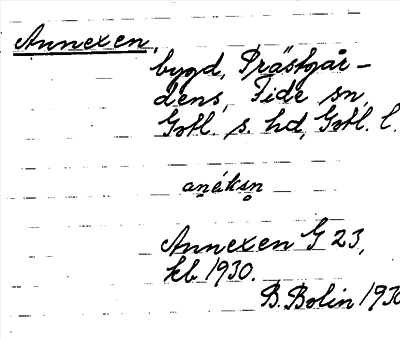 Annexen,
bygd, Prästgår-
dens, Fide sn,
Gotl. s. hd, Gotl. l.
anéksn̥
Annexen G 23,
kb 1930.
B. Bolin 1930